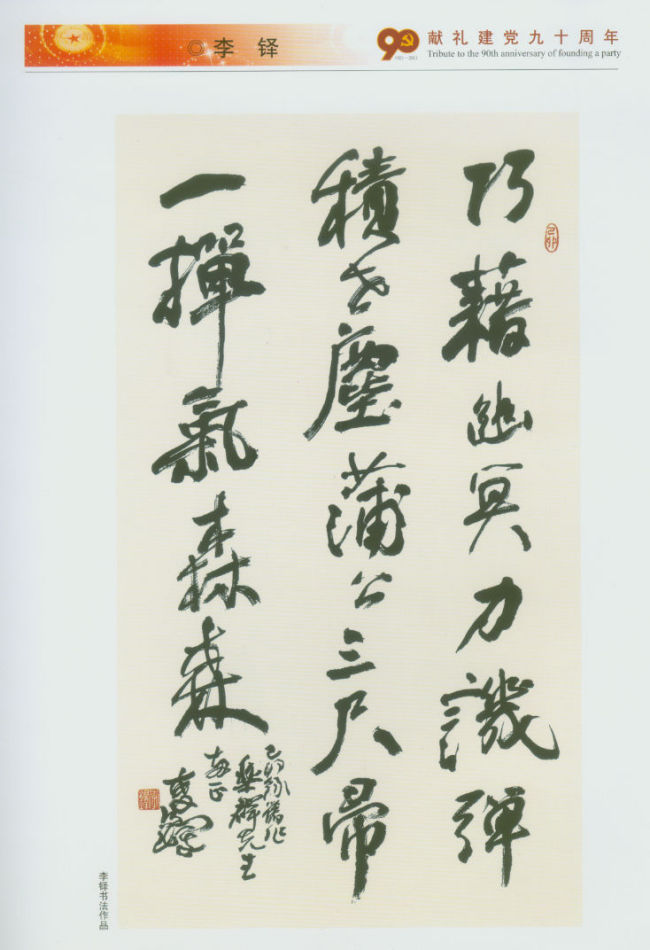 李铎
90
1921—2011
献礼建党九十周年
Tribute to the 90th anniversary of founding a party
巧藉幽冥力譏弹
積世塵蒲公三尺帚
一揮氣森森
己卯録舊作
先生
教正
李铎书法作品